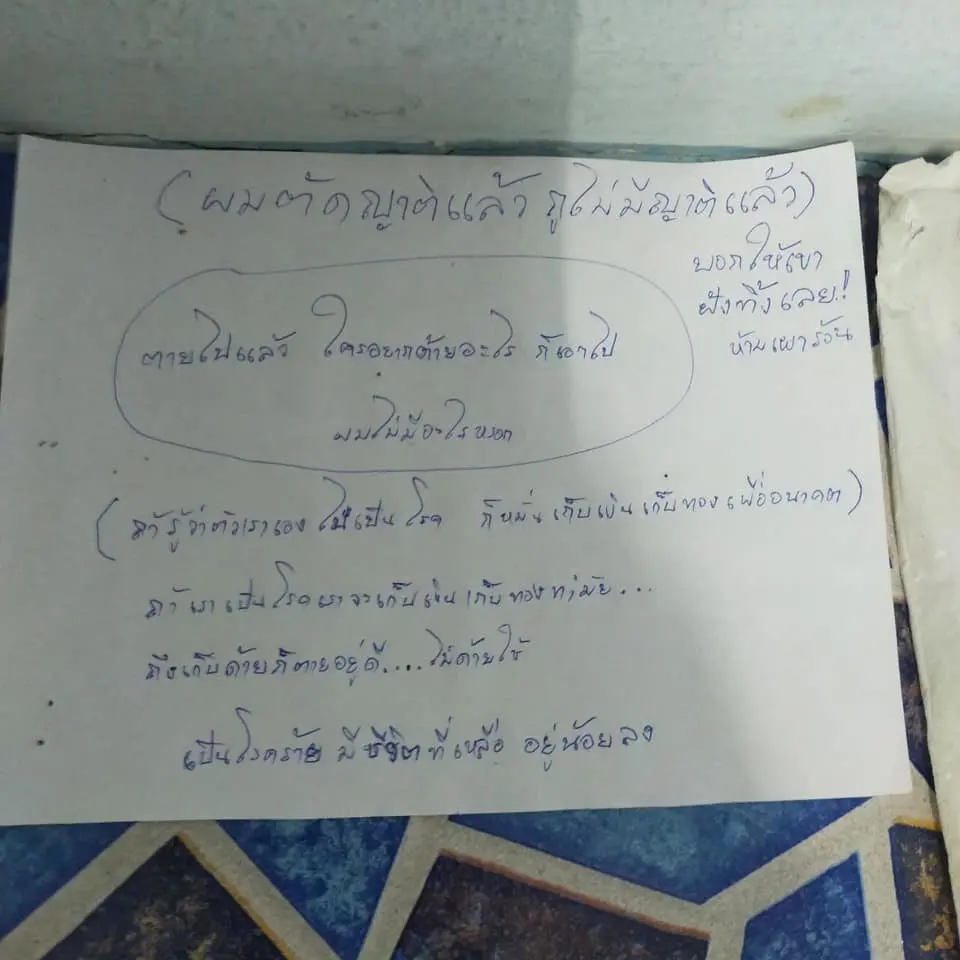 (ผมตัดญาติแล้ว กูไม่มีญาติแล้ว)
บอกให้เขา
ฝังทิ้งเลย!
ห้ามเผาร้อน
ตายไปแล้ว ใครอยากด้ายอะไร ก็เอาไป
ผมไม่มีอะไรหรอก
(ถ้ารู้ว่าตัวเราเอง ไม่เป็นโรค ก็หมั่นเก็บเงินเก็บทองเพื่ออนาคต)
ถ้าเราเป็นโรคเราจะเก็บเงินเก็บทองทำมัย...
ถึงเก็บด้ายก็ตายอยู่ดี....ไม่ด้ายใช้
เป็นโรคร้าย มีชีวิตที่เหลือ อยู่น้อยลง